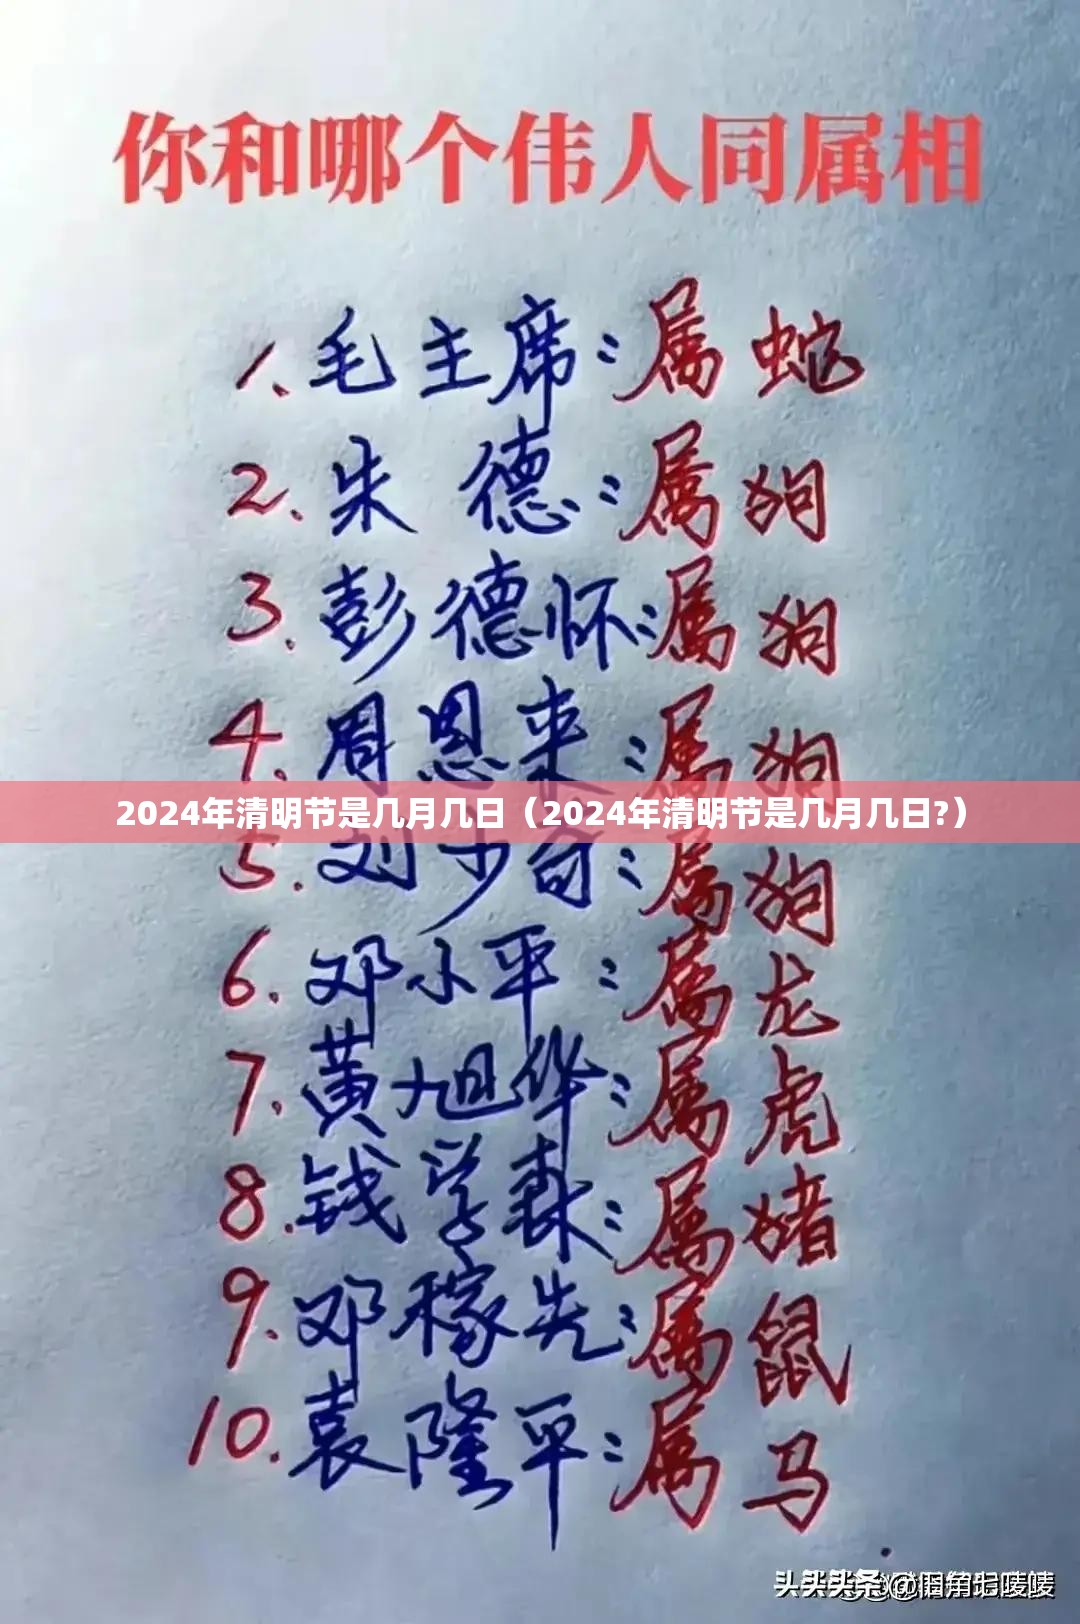 你和哪个伟人同属相
1、毛主席：属蛇
2、朱德：属狗
3、彭德怀：属狗
4、周恩来：属狗
2024年清明节是几月几日（2024年清明节是几月几日?）
5、刘少奇：属狗
6、邓小平：属龙
7、黄旭华：属虎
8、钱学森：属猪
9、邓稼先：属鼠
10、袁隆平：属马
头条 @